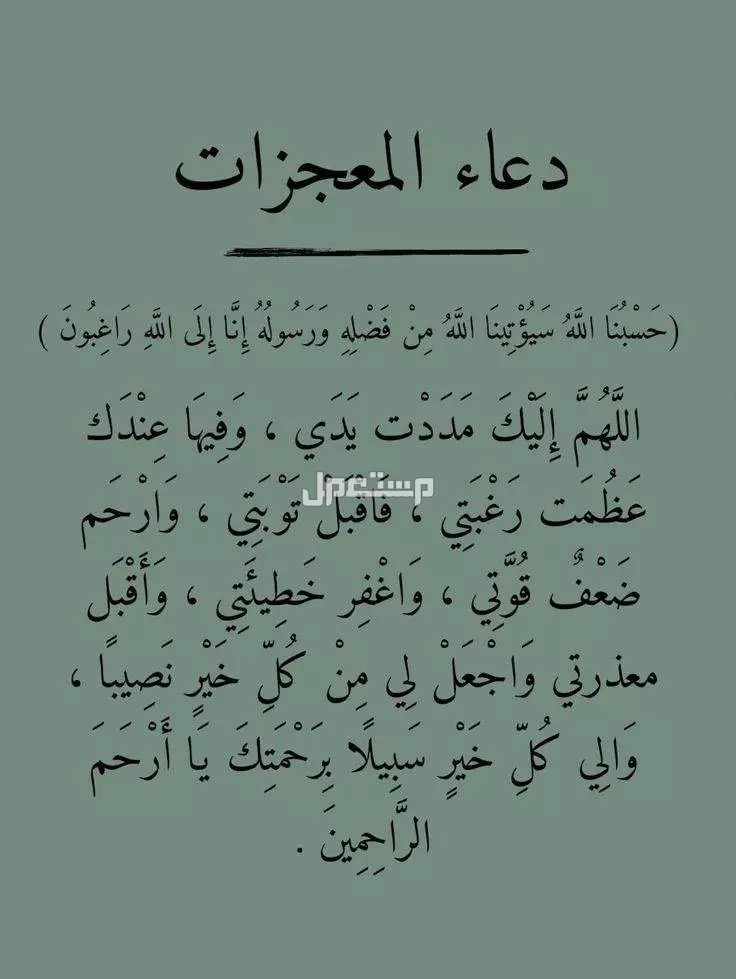 دعاء المعجزات
(حَسْبُنَا اللَّهُ سَيُؤْتِينَا اللَّهُ مِنْ فَضْلِهِ وَرَسُولُهُ إِنَّا إِلَى اللَّهِ رَاغِبُونَ )
اللَّهُمَّ إِلَيْكَ مَدَدْت يَدَي ، وَفِيهَا عِنْدَك
مستعمل
عَظُمَت رَغْبَتِي ، فَاقْبَلْ تَوْبَتِي ، وَارْحَم
ضَعْفٌ قُوَّتِي ، وَاغْفِر خَطِيئَتِي ، وَأَقْبَل
معذرتي وَاجْعَلْ لِي مِنْ كُلِّ خَيْرٍ نَصِيبًا ،
وَالِي كُلِّ خَيْرٍ سَبِيلًا بِرَحْمَتِكَ يَا أَرْحَمَ
الرَّاحِمِينَ .